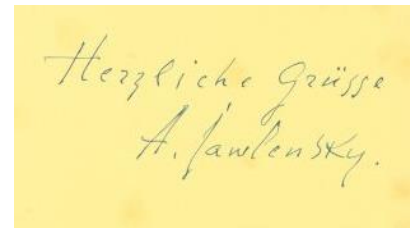 Herzliche Grüsse
A. Jawlensky.